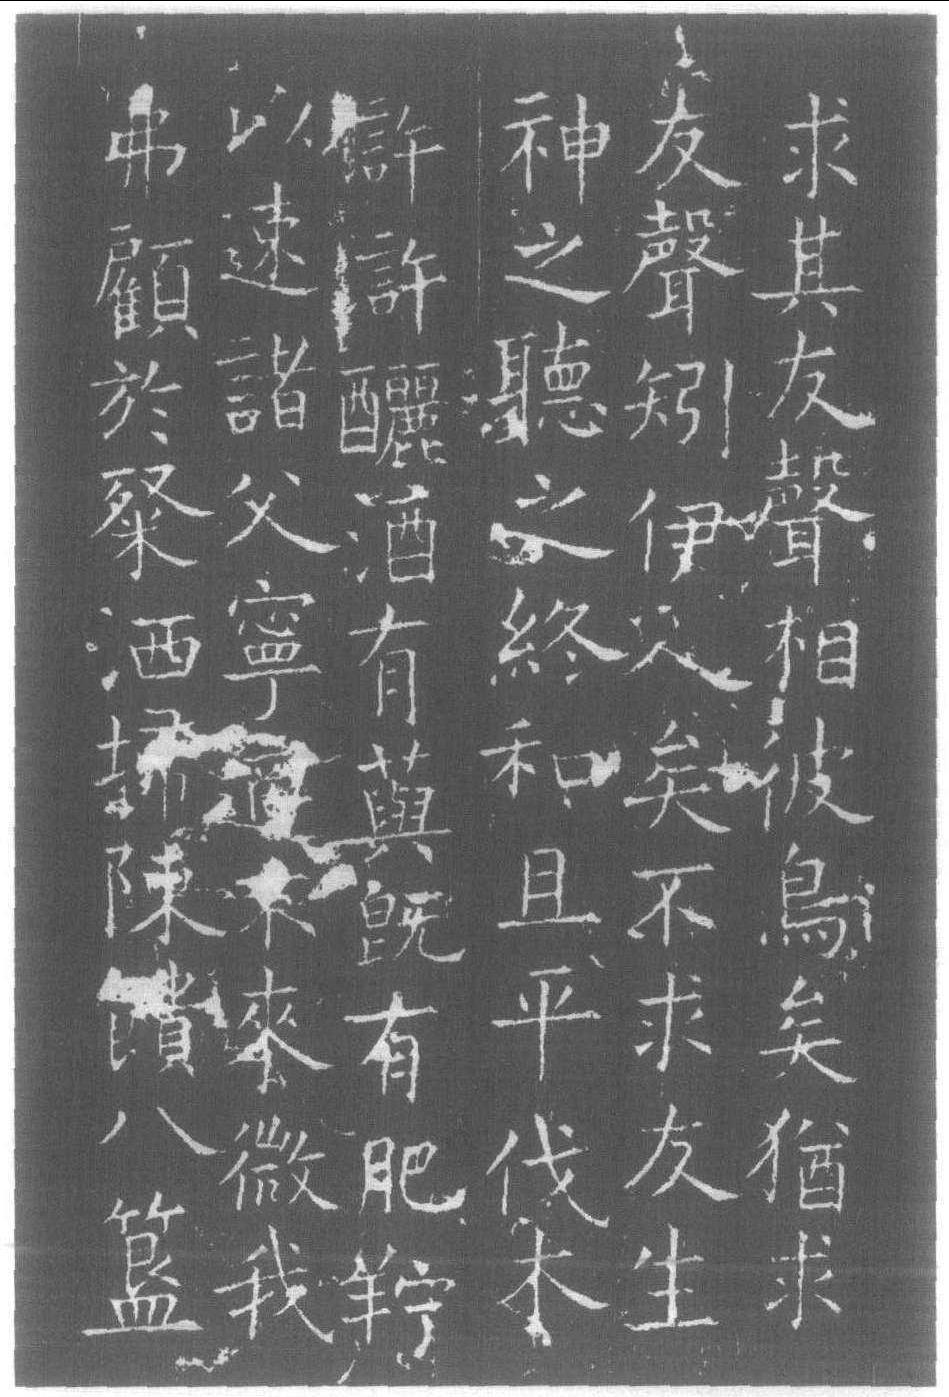 求其友聲相彼鳥矣猶求
友聲矧伊人矣不求友生
神之聽之終和且平伐木
許許釃酒有藇既有肥羜
以速諸父寧適不來微我
弗顧於粲洒埽陳饋八簋